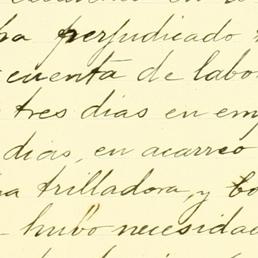 ha perjudicado
cuenta de labo
tres dias en em
dias, en acarreo
trilladora, y
hubo necesidad